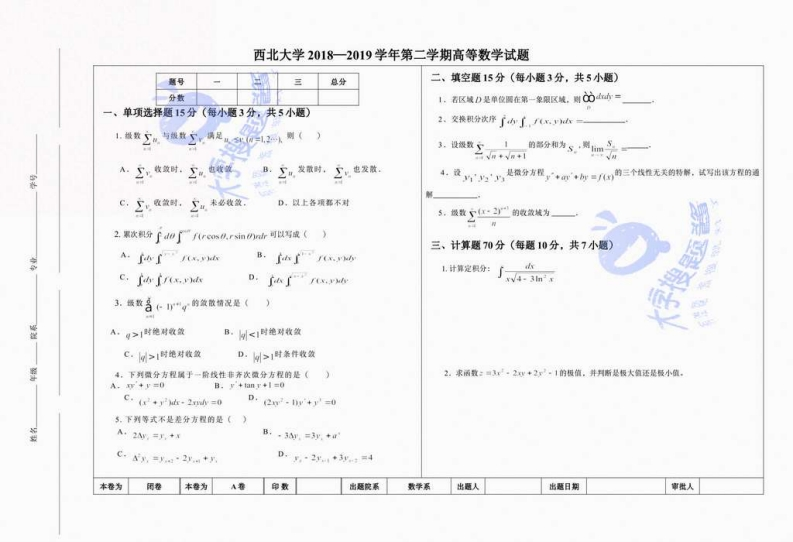 西北大学 2018—2019 学年第二学期高等数学试题
题号 一 二 三 总分
分数
一、单项选择题 15 分（每小题 3 分，共 5 小题）
1. 级数 ∑vₙ 与级数 ∑vₙ 满足 uₙ ≤ vₙ (n=1,2…), 则（ ）
A、∑vₙ 收敛时， ∑uₙ 也收敛 B、∑uₙ 发散时， ∑vₙ 也发散.
C、∑vₙ 收敛时， ∑uₙ 未必收敛. D、以上各项都不对
2. 累次积分 ∫dθ∫ f(r cosθ, r sinθ)rdr 可以写成（ ）
A、 ∫dy∫ f(x, y)dx B、 ∫dx∫ f(x, y)dy
C、 ∫dy∫ f(x, y)dx D、 ∫dx∫ f(x, y)dy
3、级数 å (-1)ⁿ⁺¹qⁿ 的敛散情况是（ ）
A、 q>1时绝对收敛 B、|q|<1时绝对收敛
C、|q|>1时绝对收敛 D、|q|>1时条件收敛
4、下列微分方程属于一阶线性非齐次微分方程的是（ ）
A、 xy′ + y =0 B、 y′ + tan y + 1 =0
C、 (x² + y²)dx - 2xydy =0 D、 (2xy² - 1)y′ + y³ =0
5. 下列等式不是差分方程的是（ ）
A、 2Δyₓ = yₓ + x B、 - 3Δyₓ =3yₓ + aˣ
C、 Δ²yₓ = yₓ₊₂ - 2yₓ₊₁ + yₓ D、 yₓ - 2yₓ₋₁ + 3yₓ₋₂ =4
二、填空题 15 分（每小题 3 分，共 5 小题）
1、若区域 D 是单位圆在第一象限区域，则 òò dxdy = ______.
D
2、交换积分次序 ∫dy∫ f(x, y)dx = ______.
3、设级数 ∑ 1/(√n + √n+1) 的部分和为 Sₙ, 则 lim Sₙ/√n = ______.
4、设 y₁, y₂, y₃ 是微分方程 y″ + ay′ + by = f(x) 的三个线性无关的特解，试写出该方程的通
解______.
5、级数 ∑ (x - 2)ⁿ⁺¹/n 的收敛域为______.
三、计算题 70 分（每题 10 分，共 7 小题）
1. 计算定积分： ∫ dx/(x√4 - 3ln²x)
2、求函数 z =3x² - 2xy + 2y² - 1 的极值，并判断是极大值还是极小值。
学号
专业
院系
年级
姓名
大学搜题酱
大学搜题酱
本卷为 闭卷 本卷为 A 卷 印 数 出题院系 数学系 出题人 出题日期 审批人